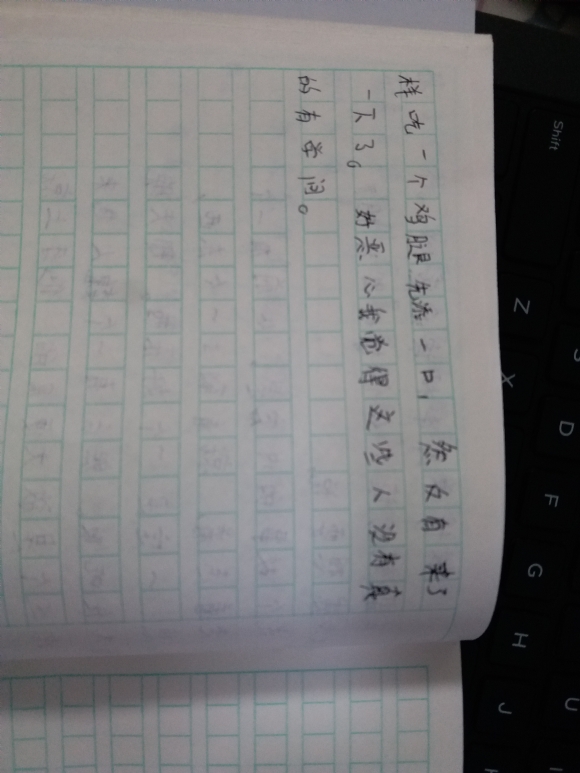 样吃一个鸡腿先添一口，然后自来了
一下了。好恶心我觉得这些人没有真
的有学问。
Shift
Z
X
S
D
F
G
H
J
U